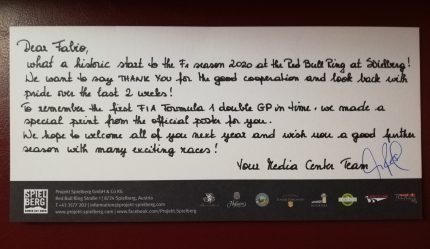 Dear Fabio,
what a historic start to the F1 season 2020 at the Red Bull Ring at Spielberg!
We want to say THANK YOU for the good cooperation and look back with
pride over the last 2 weeks!
To remember the first FIA Formula 1 double GP in time, we made a
special print from the official poster for you.
We hope to welcome all of you next year and wish you a good further
season with many exciting races!
Your Media Center Team
SPIEL
BERG
Projekt Spielberg GmbH & Co KG
Red Bull Ring Straße 1 | 8724 Spielberg, Austria
T +43 3577 202 | information@projekt-spielberg.com
www.projekt-spielberg.com | www.facebook.com/Projekt.Spielberg